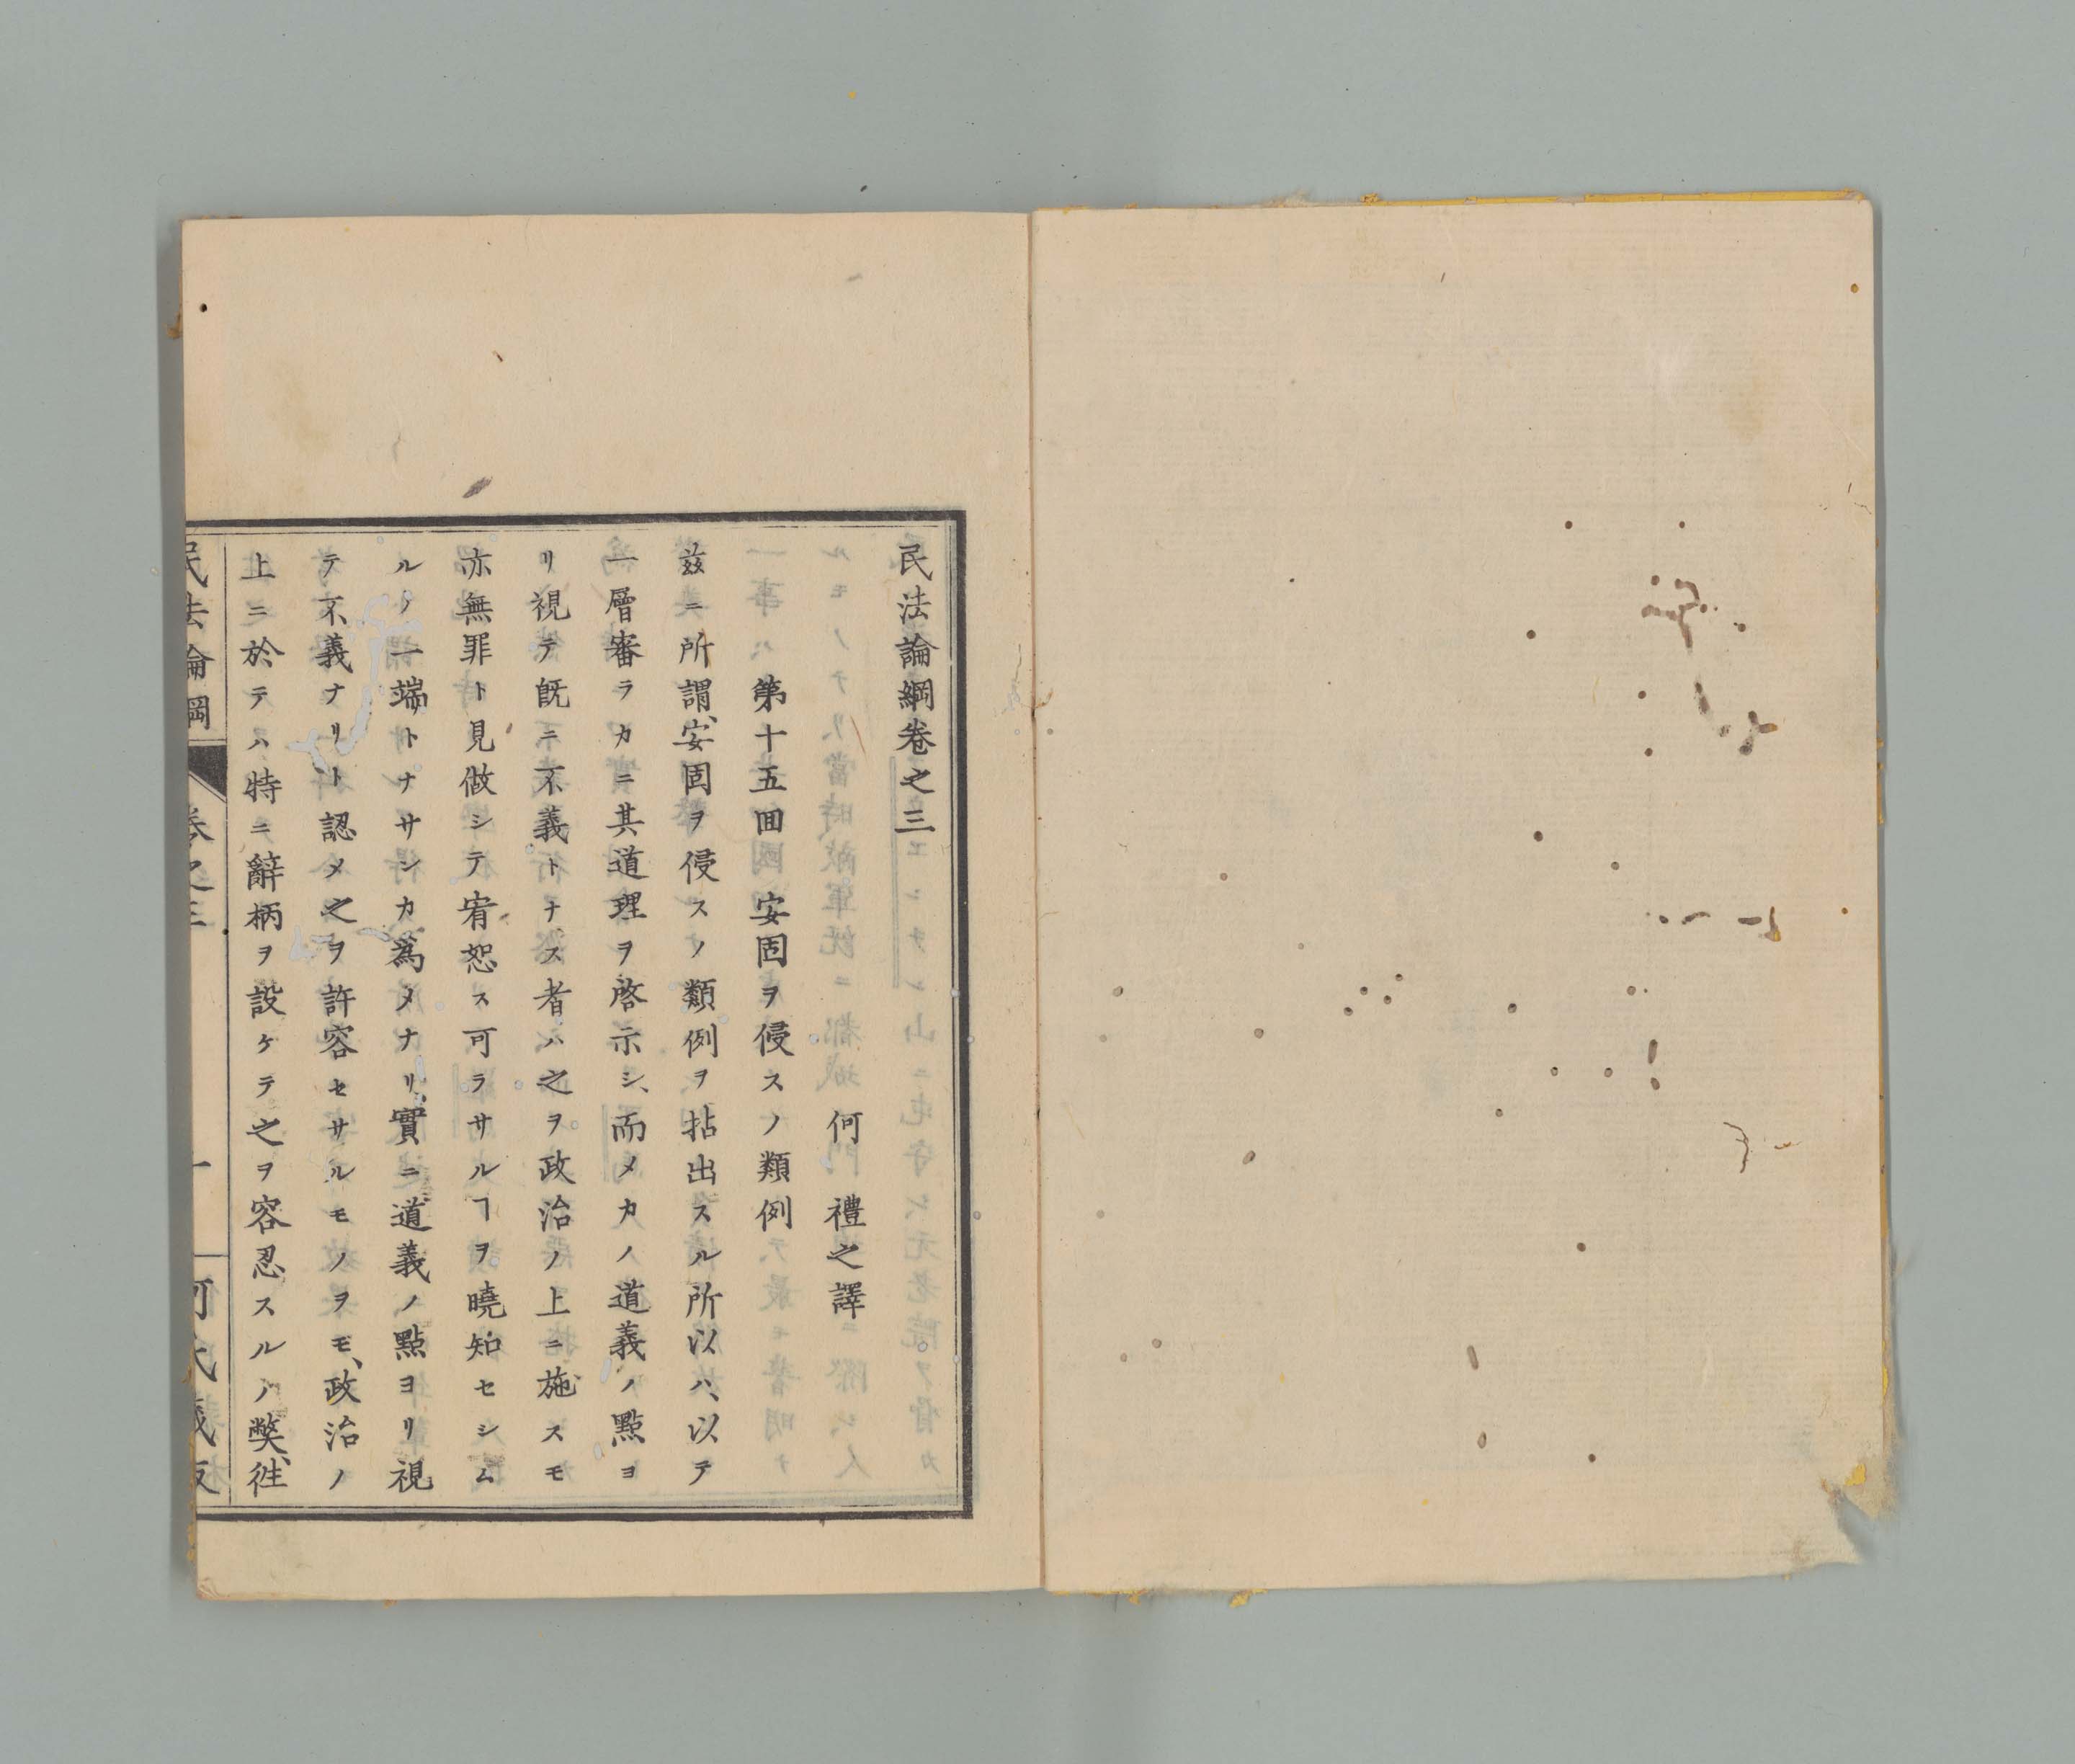 民法論綱卷之三
何禮之譯
第十五囬 安固ヲ侵スノ類例
玆ニ所謂、安固ヲ侵スノ類例ヲ拈出スル所以ハ、以テ
一層審ラカニ其道理ヲ啓示シ、而メカノ道義ノ點ヨ
リ視テ既ニ不義トナス者ハ之ヲ政治ノ上ニ施スモ
亦無罪ト見做シテ宥恕ス可ラサルヿヲ曉知セシム
ルノ一端トナサシカ爲メナリ、實ニ道義ノ點ヨリ視
テ不義ナリト認メ之ヲ許容セサルモノヲモ、政治ノ
上ニ於テハ特ニ辭柄ヲ設ケテ之ヲ容忍スルノ獘、徃
民法論綱 卷之三 一 何氏藏板